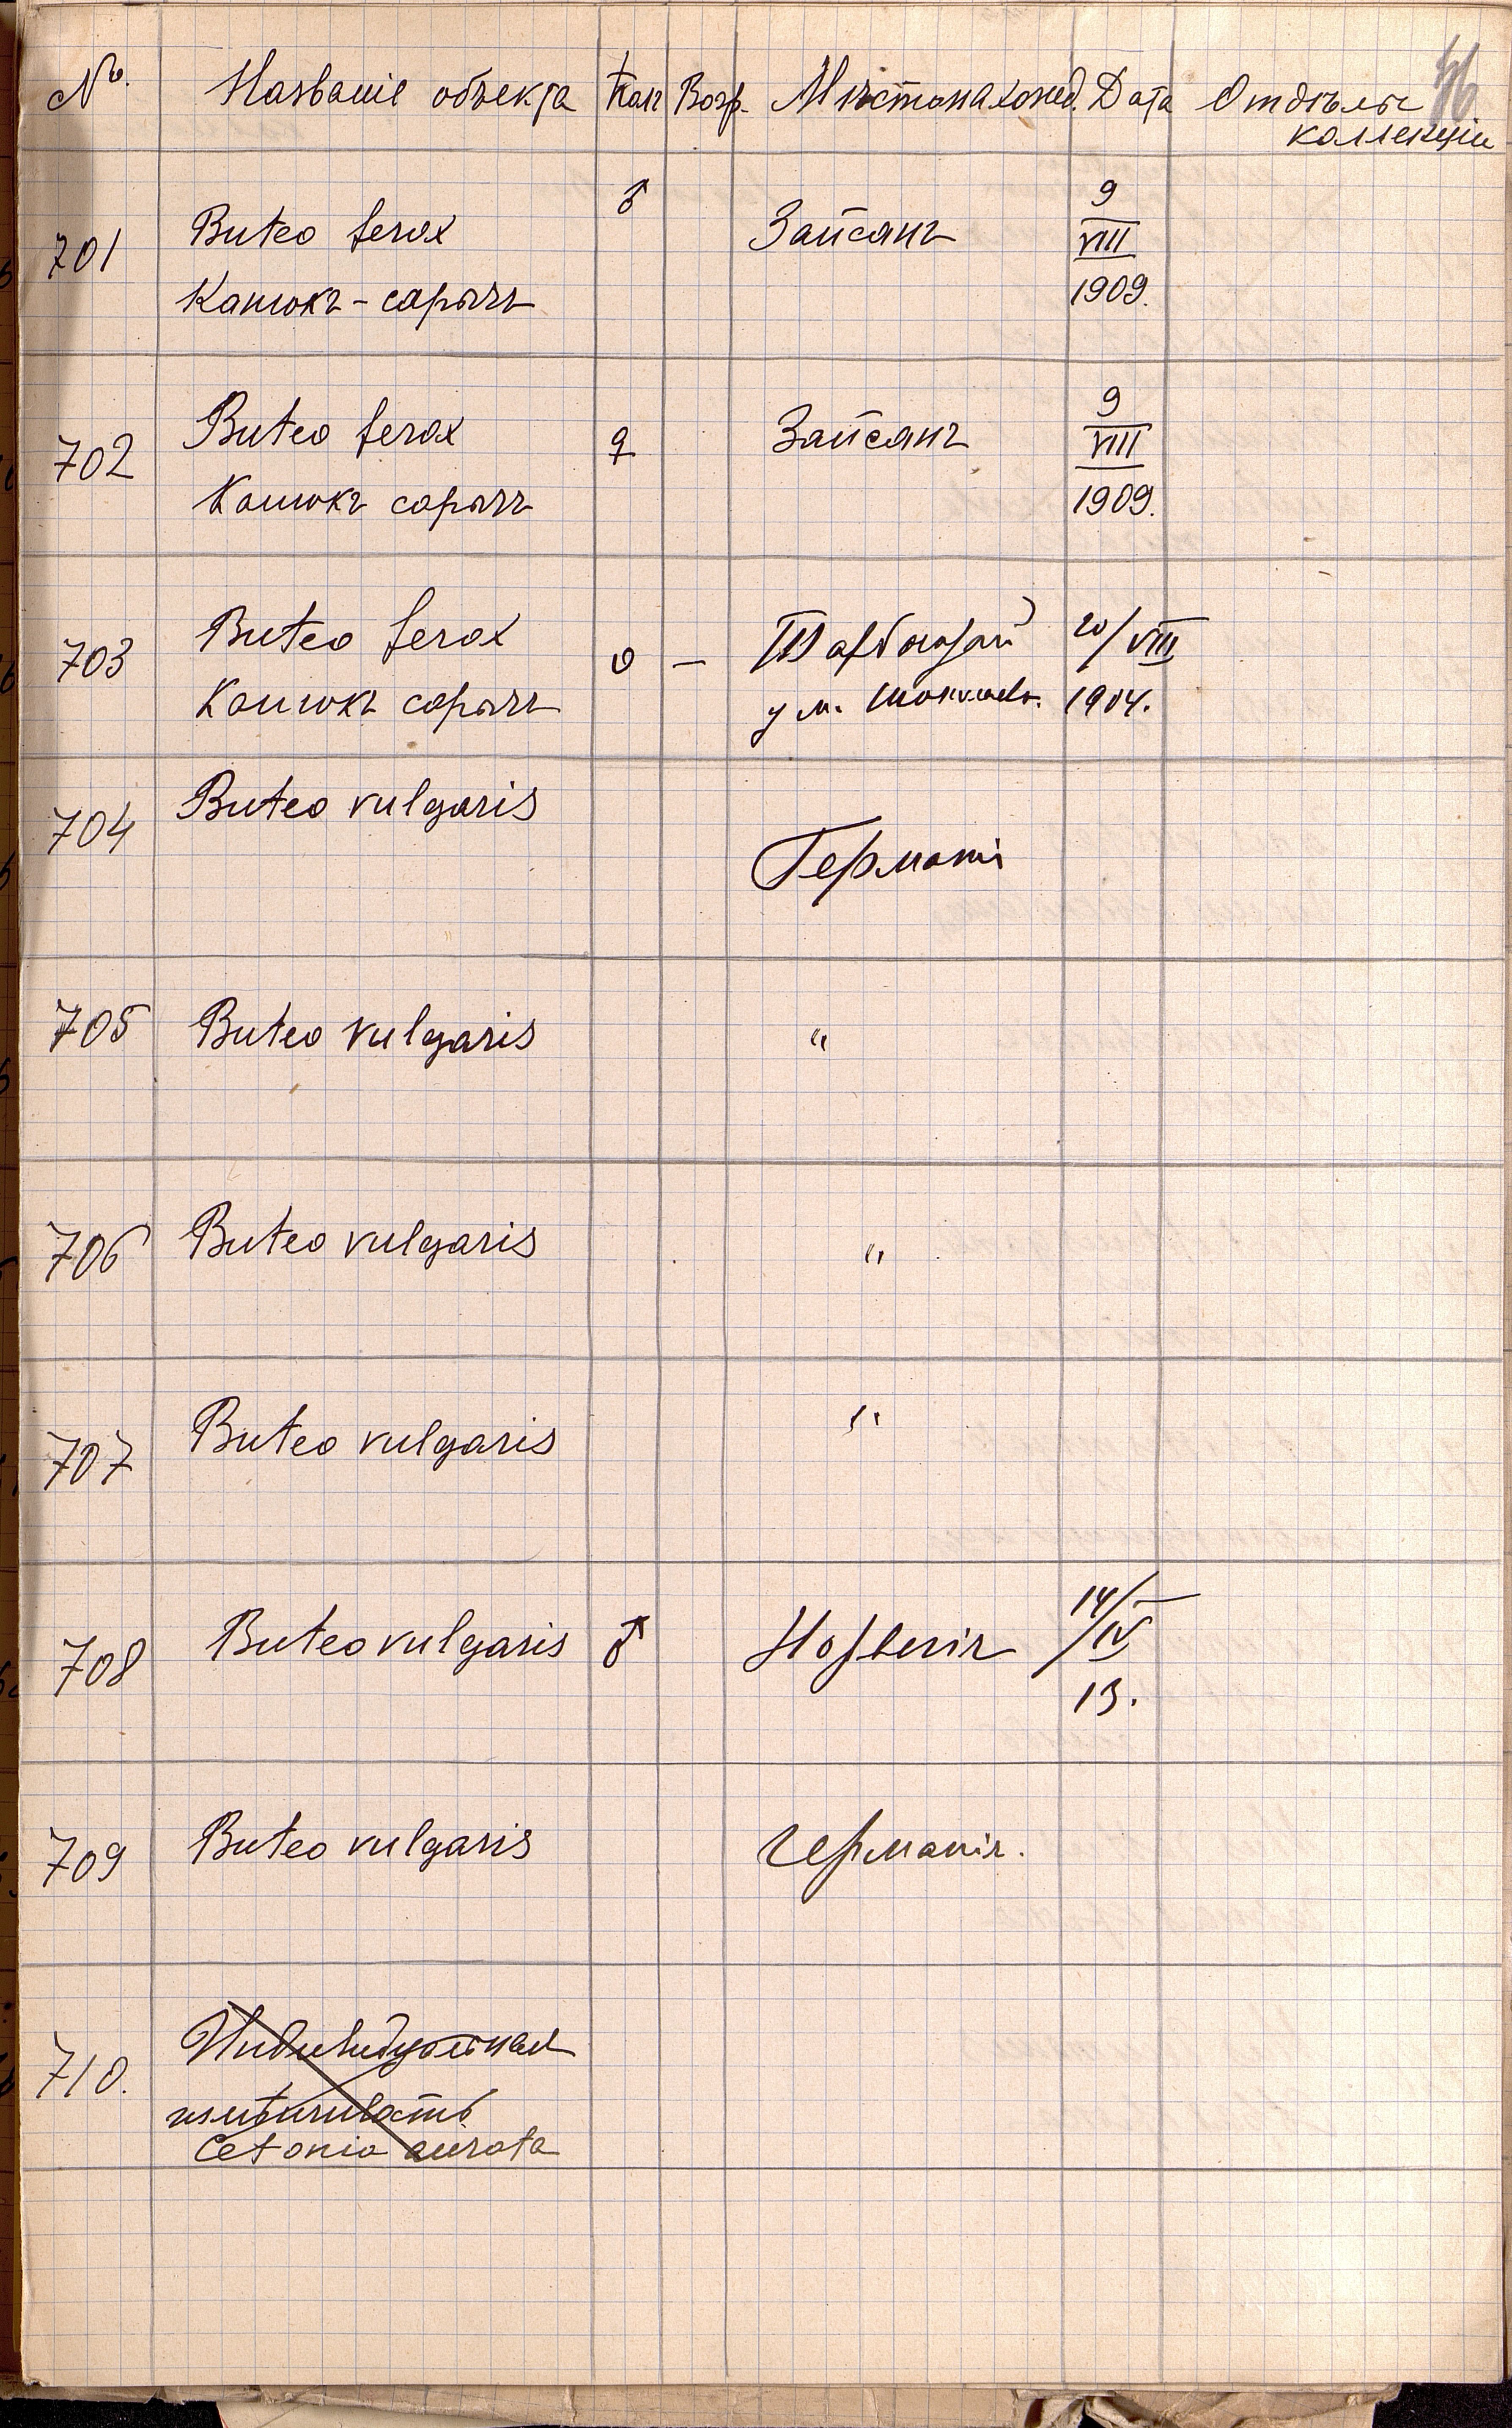 № Названіе объекта Пол Возр. Мѣстонахожд. Дата Отдѣлы коллекціи
46
701 Buteo ferox ♂ Зайсанъ 9 VIII 1909.
Канюкъ - сарычъ
702 Buteo ferox ♀ Зайсанъ 9 VIII 1909.
Канюкъ сарычъ
703 Buteo ferox о — Тарбагатай 20/VIII
Канюкъ сарычъ у м. 1904.
704 Buteo vulgaris Германі
705 Buteo vulgaris "
706 Buteo vulgaris "
707 Buteo vulgaris "
708 Buteo vulgaris ♂ Норвегія 14/IV 13.
709 Buteo vulgaris Германія.
710. Индивидуальная
измѣнчивость
Cetonia aurata